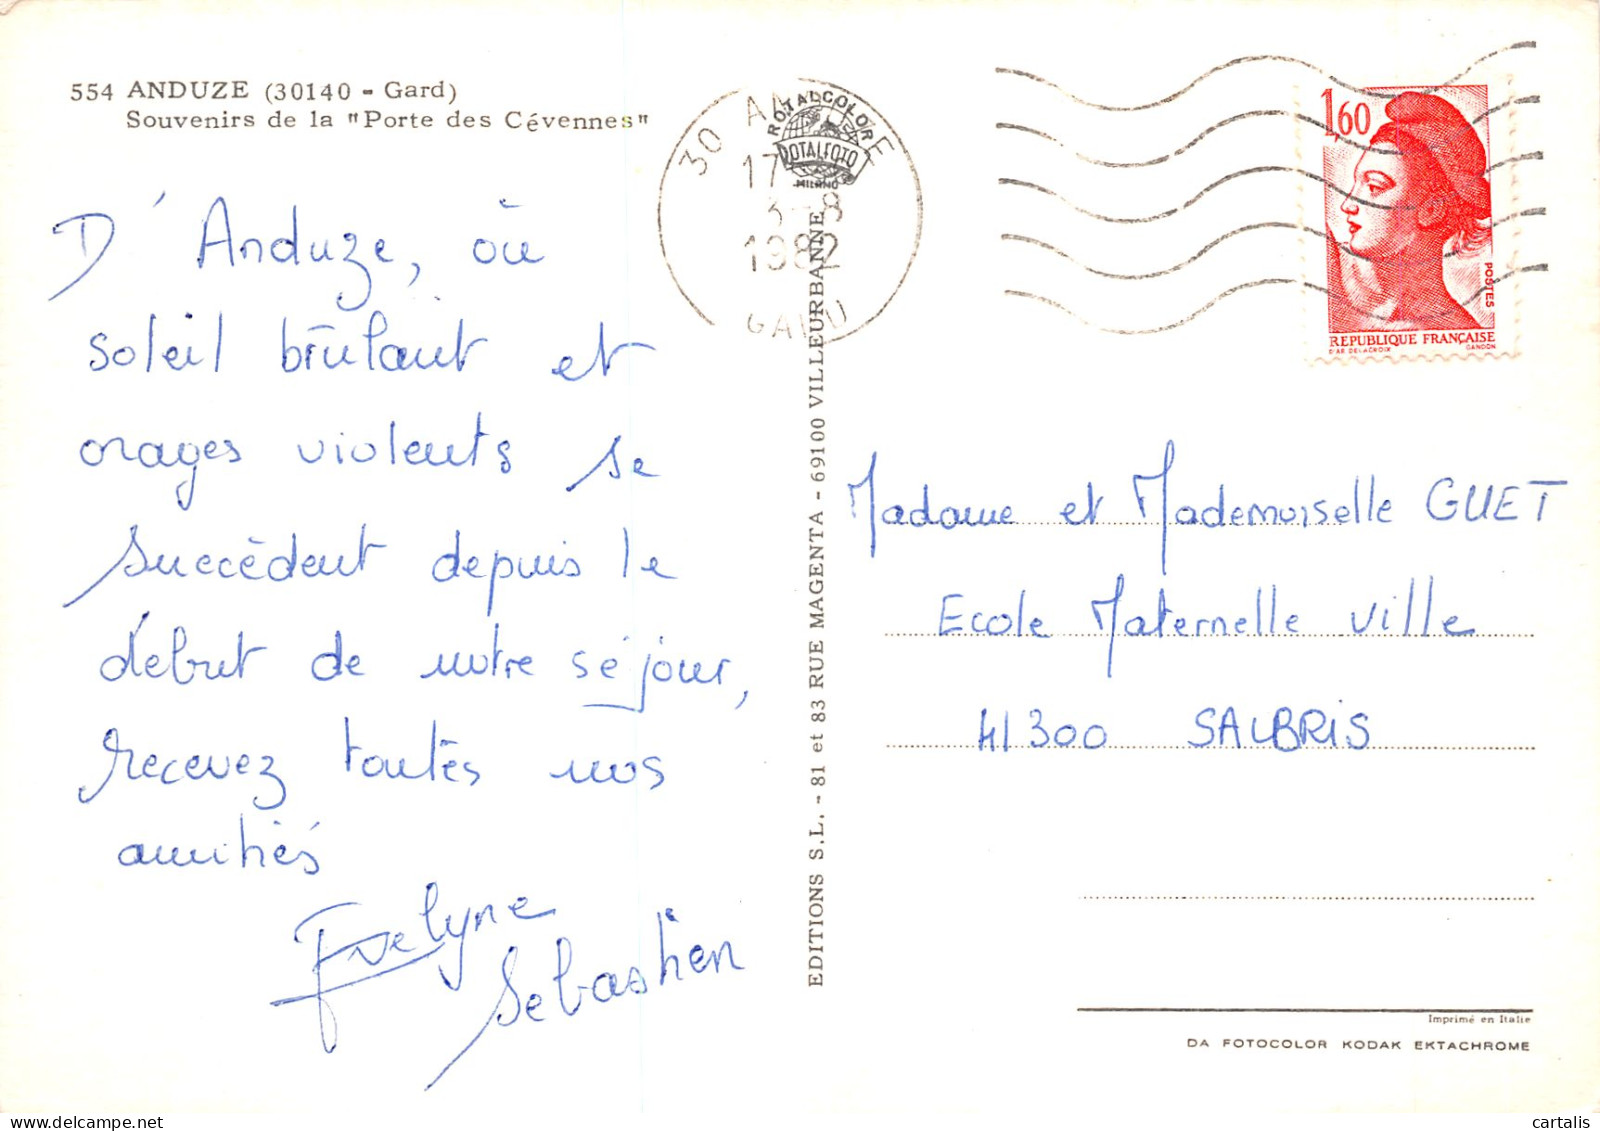 554 ANDUZE (30140 - Gard)
Souvenirs de la "Porte des Cévennes"
D'Anduze, où
soleil brûlant et
orages violents se
succèdent depuis le
début de notre séjour,
recevez toutes nos
amitiés
Evelyne
Sebastien
30 AN
17
3-8
1982
GARD
ROTALCOLORE
ROTALFOTO
MILANO
EDITIONS S.L. - 81 et 83 RUE MAGENTA - 69100 VILLEURBANNE
1,60
POSTES
REPUBLIQUE FRANÇAISE
D'AP. DELACROIX GANDON
Madame et Mademoiselle GUET
Ecole Maternelle Ville
41300 SALBRIS
Imprimé en Italie
DA FOTOCOLOR KODAK EKTACHROME
cartalis